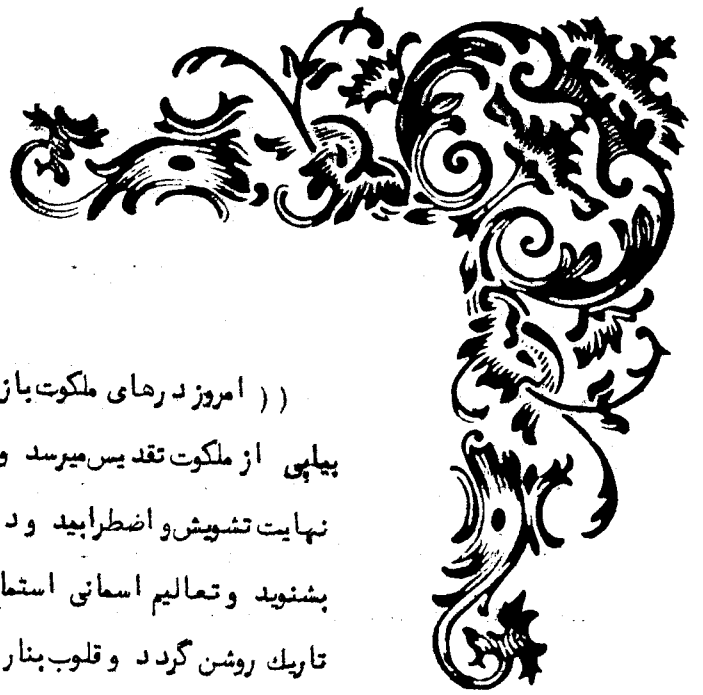 (( امروز درهای ملکوت باز
پیاپی از ملکوت تقدیس میرسد و
نهایت تشویش و اضطرابید و د
بشنوید و تعالیم اسمانی استما
تاریك روشن گردد و قلوب بنار